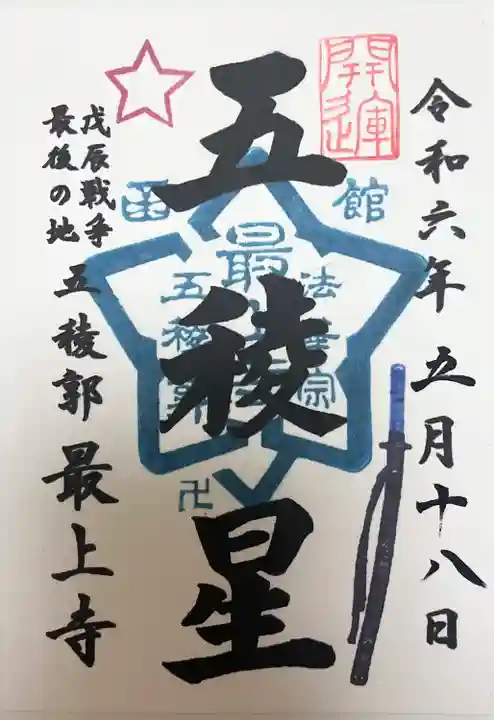 開運
令和六年五月十八日
五稜星
函館
法華宗
最上寺
五稜郭
卍
戊辰戦争
最後の地
五稜郭最上寺